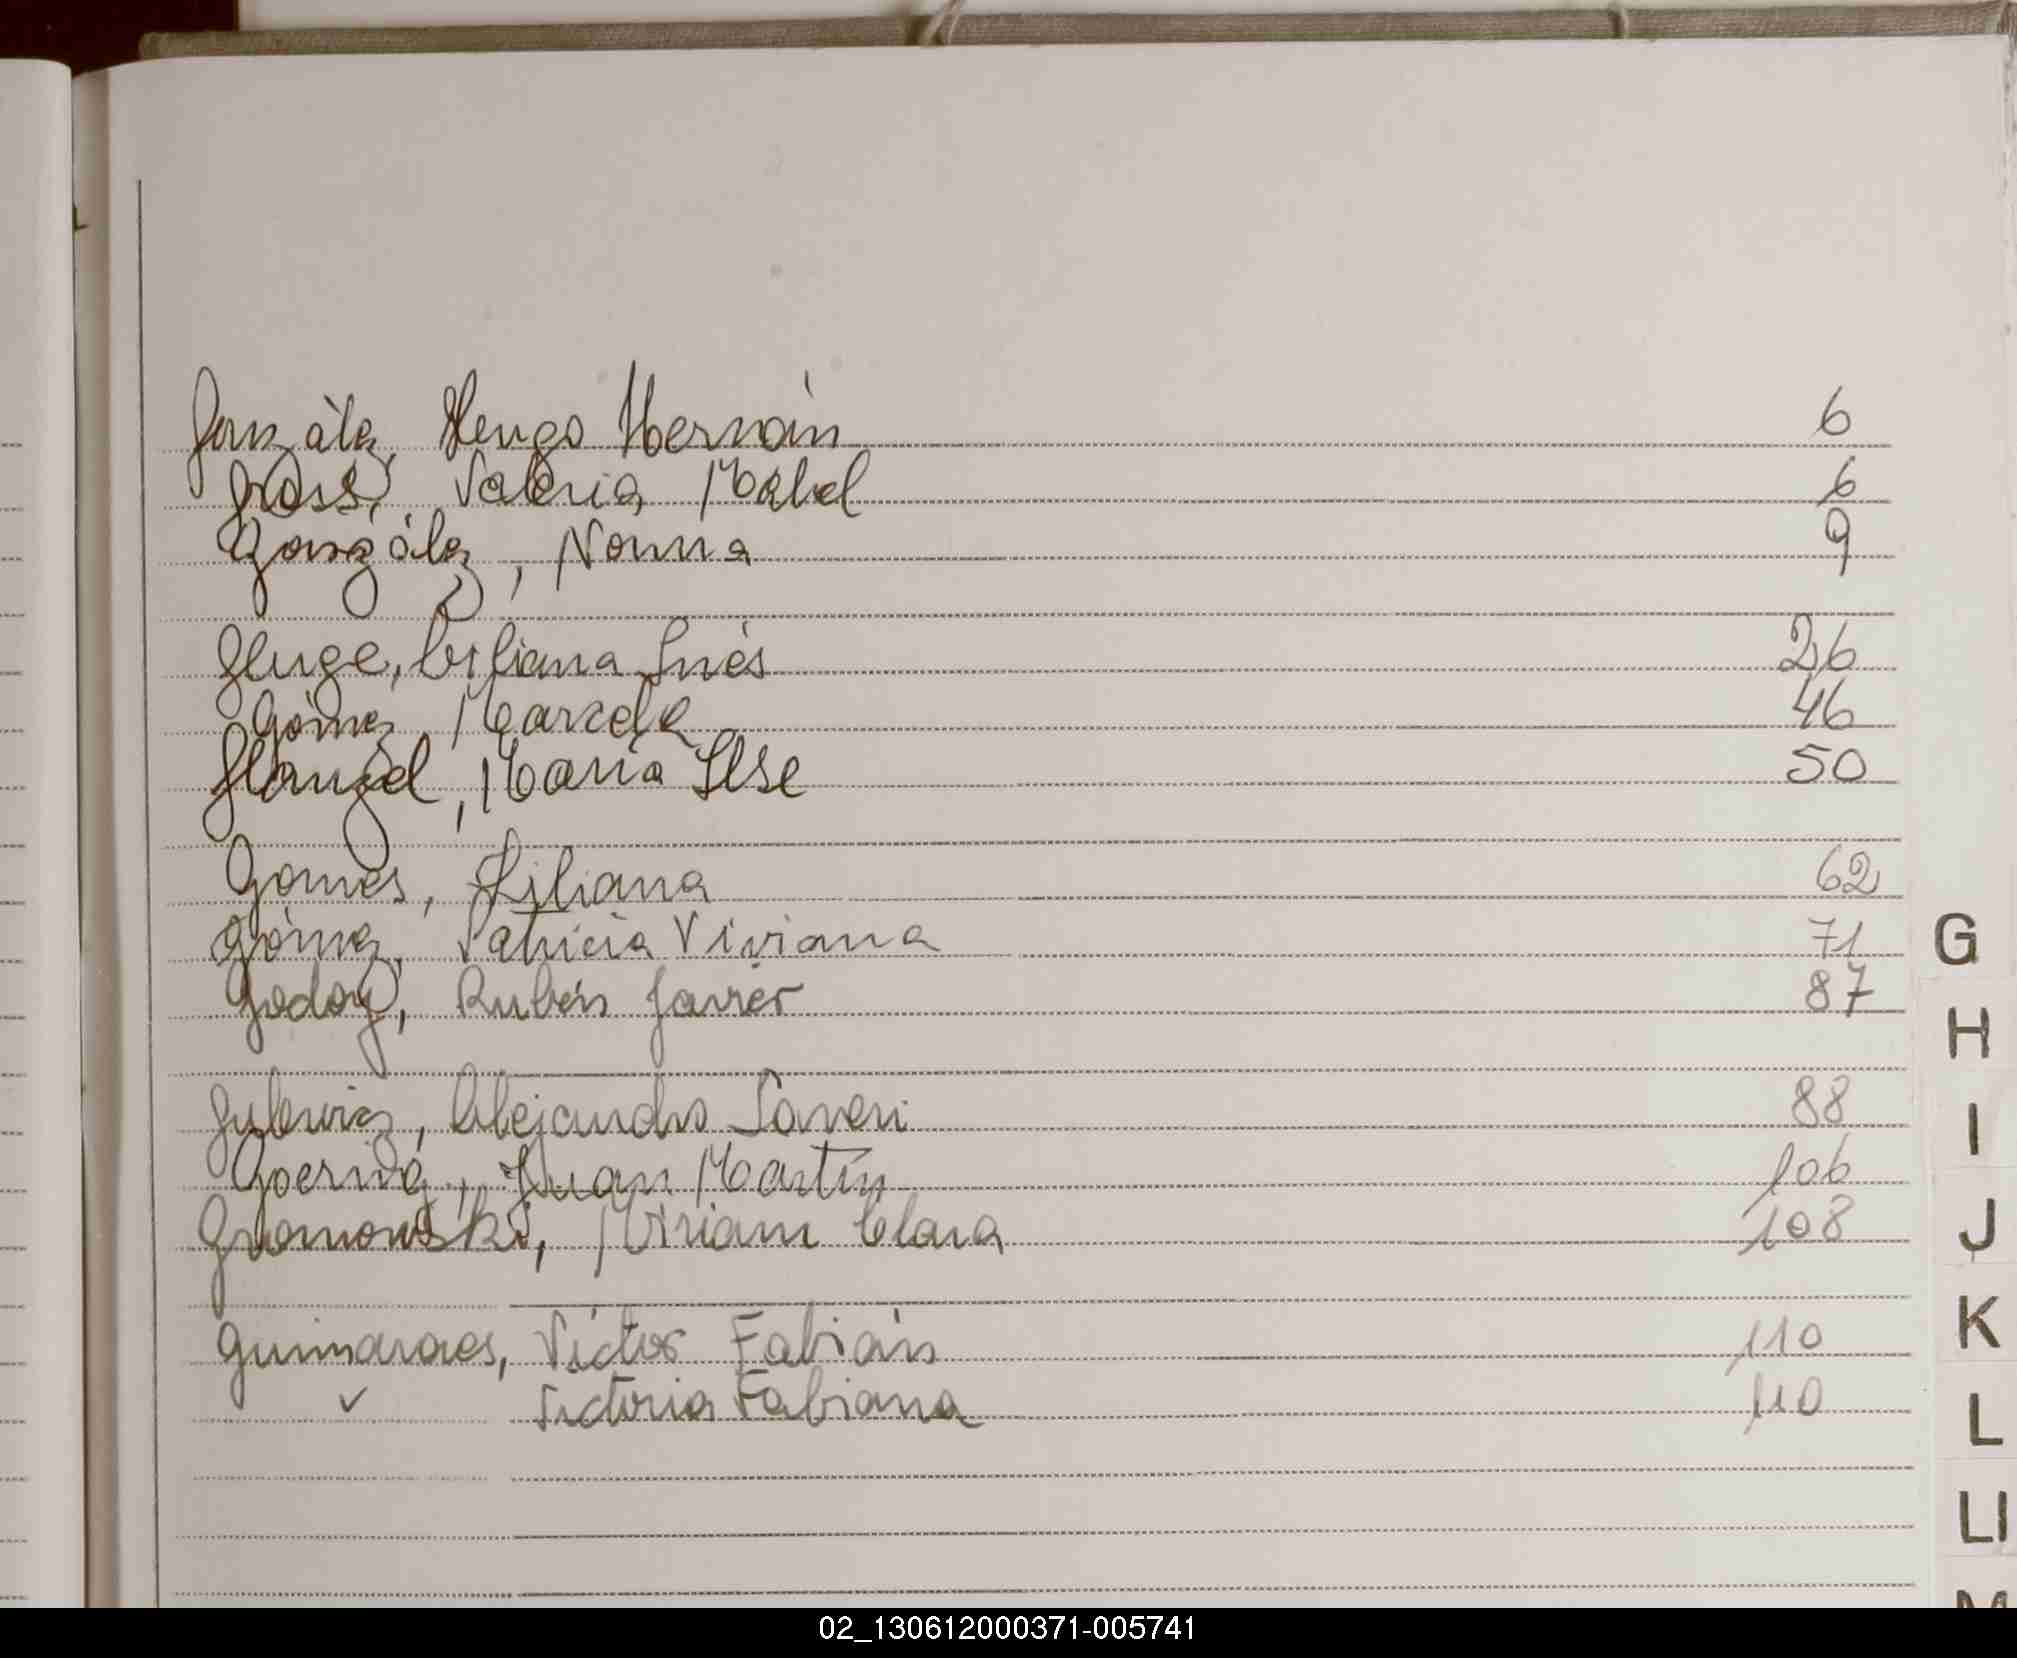 González, Hugo Hernán 6
Gross, Valeria Mabel 6
González, Norma 9
Gluge, Liliana Inés 26
Gómez, Marcela 46
Glanzel, María Ilse 50
Gomes, Liliana 62
Gómez, Patricia Viviana 71
Godoy, Rubén Javier 87
Alejandro 88
Goering, Juan Martín 106
Gromowski, Miriam Clara 108
Guimaraes, Víctor Fabián 110
✓ Victoria Fabiana 110
G
H
I
J
K
L
Ll
M
02_130612000371-005741